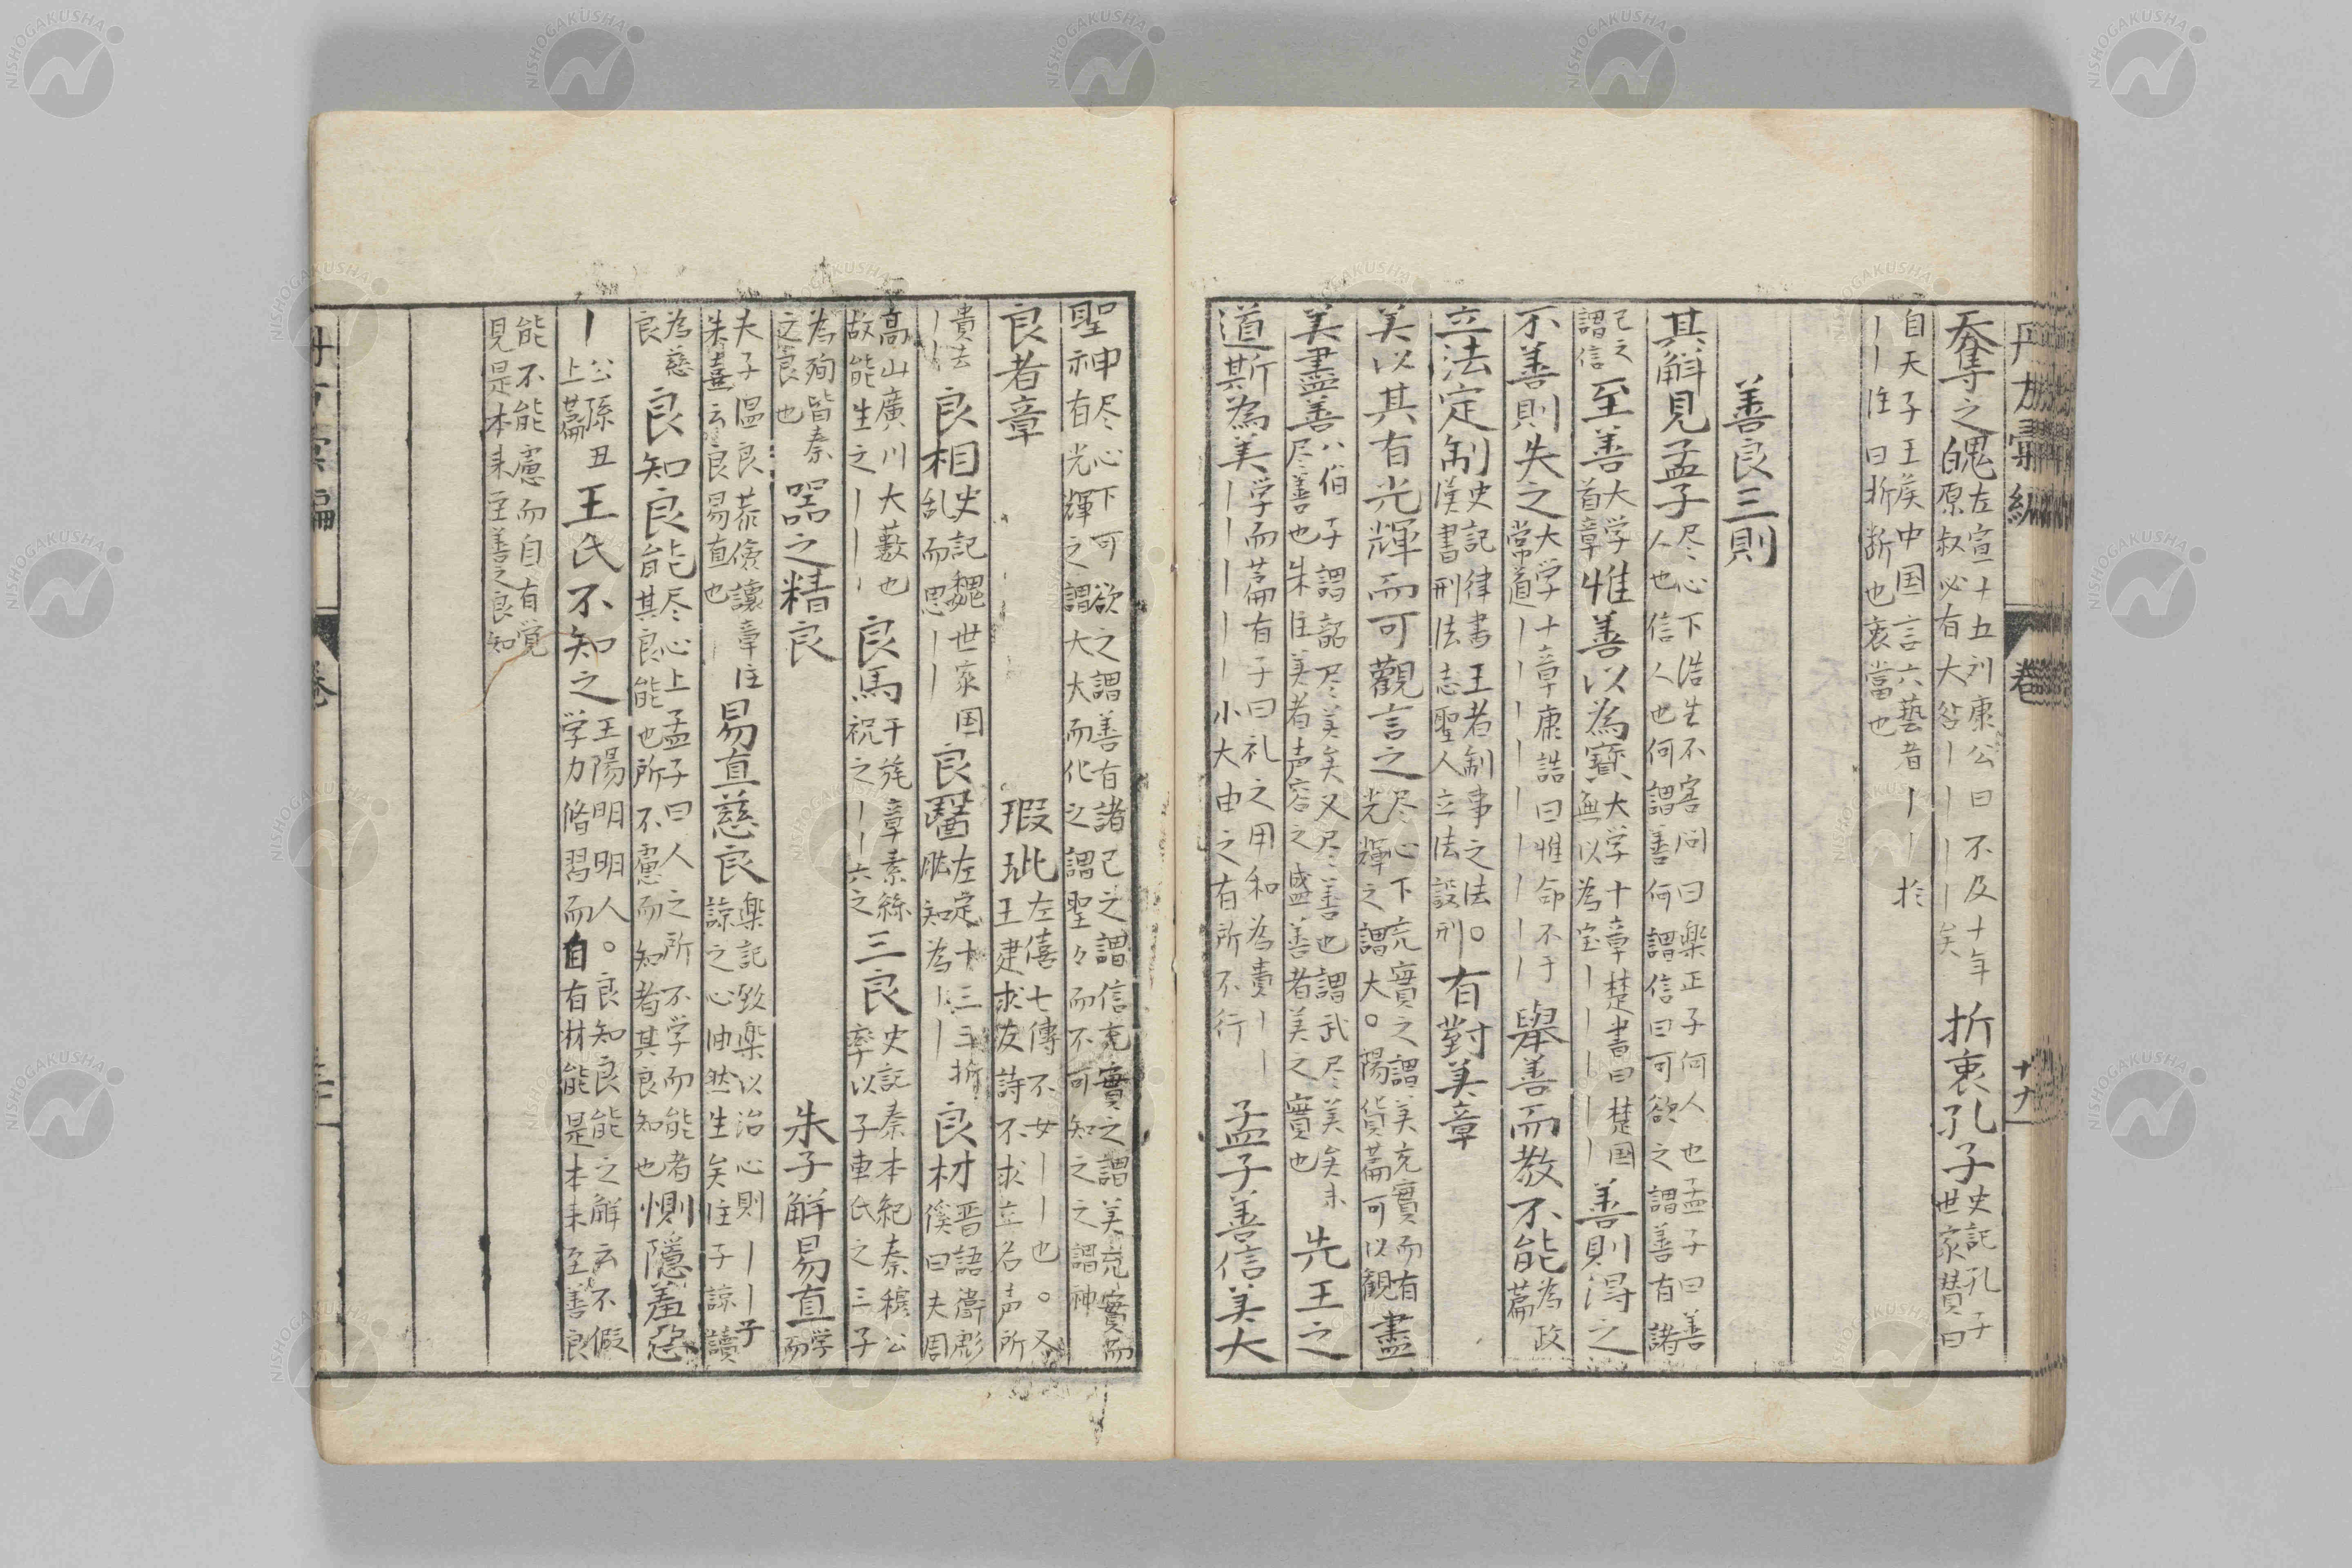 奪之魄左宣十五刘康公曰不及十年原叔必有大咎丨丨丨丨矣 折衷孔子史記孔子世家賛曰
自天子王侯中国言六藝者丨丨於丨丨注曰折断也衷當也
善良三則
其解見孟子尽心下浩生不害问曰楽正子何人也孟子曰善人也信人也何謂善何謂信曰可欲之謂善有諸
己之謂信 至善大学首章 惟善以為寳大学十章楚書曰楚国無以為宝丨丨丨丨丨 善則得之
不善則失之大学十章康誥曰惟命不于常道丨丨丨丨丨丨丨丨 舉善而教不能為政篇
立法定制史記律書王者制事之法○漢書刑法志聖人立法設刑 有對美章
美以其有光輝而可觀言之尽心下充實之謂美充實而有光輝之謂大○陽貨篇可以観 盡
美盡善八佾子謂韶尽美矣又尽善也謂武尽美矣未尽善也朱注美者声容之盛善者美之實也 先王之
道斯為美学而篇有子曰礼之用和為貴丨丨丨丨丨丨丨小大由之有所不行 孟子善信美大
聖神尽心下可欲之謂善有諸己之謂信充實之謂美充實而有光輝之謂大大而化之之謂聖々而不可知之之謂神
良者章 瑕玼左僖七傳不女丨丨也○又王建求友詩不求立名声所
貴去丨丨 良相史記魏世家国乱而思丨丨 良醫左定十三三折肱知為丨丨 良材晋語竇彫傒曰夫周
高山廣川大藪也故能生之丨丨丨 良馬干旄章素絲祝之丨丨六之 三良史記秦本紀秦穆公率以子車氏之三子
為殉皆秦之良也 器之精良 朱子解易直学而
夫子温良恭儉讓章注朱熹云良易直也 易直慈良楽記致楽以治心則丨丨子諒之心油然生矣注子諒讀
為慈良 良知良能尽心上孟子曰人之所不学而能者其良能也所不慮而知者其良知也 惻隱羞惡
丨公孫丑上篇 王氏不知之王陽明明人○良知良能之解云不假学力脩習而自有材能是本来至善良
能不能慮而自有覚見是本来至善之良知